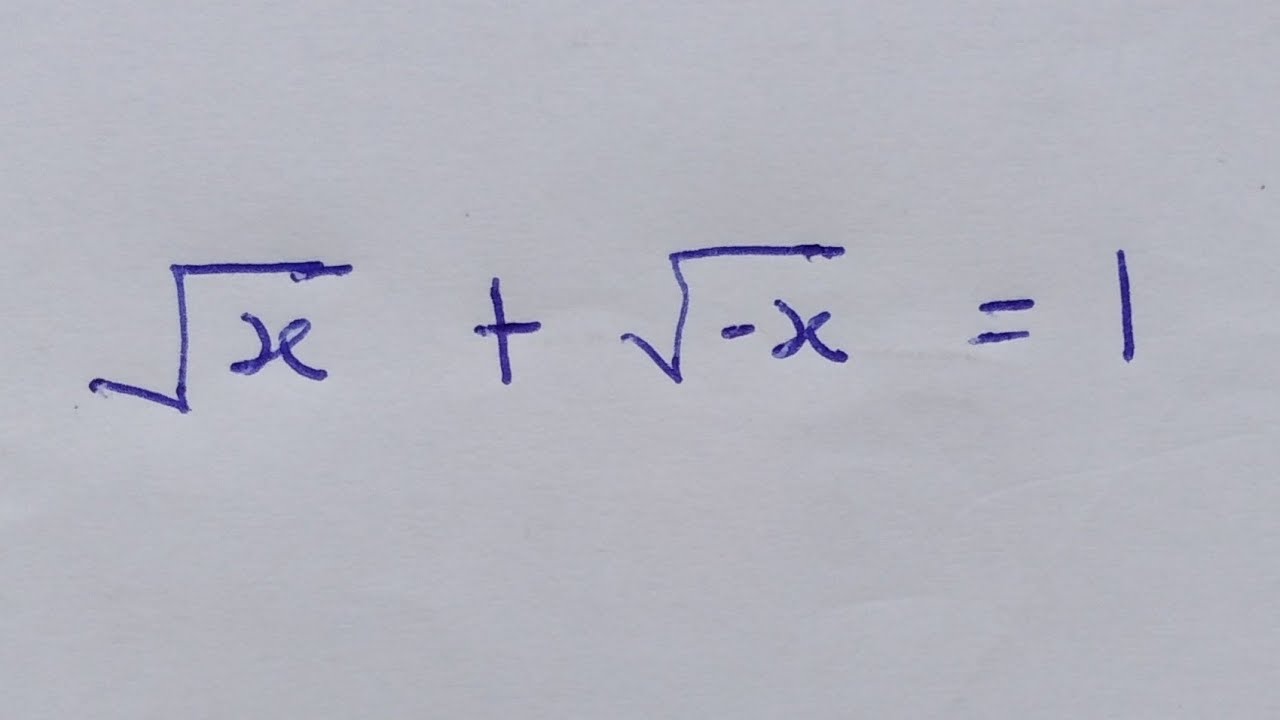 √x + √-x = 1